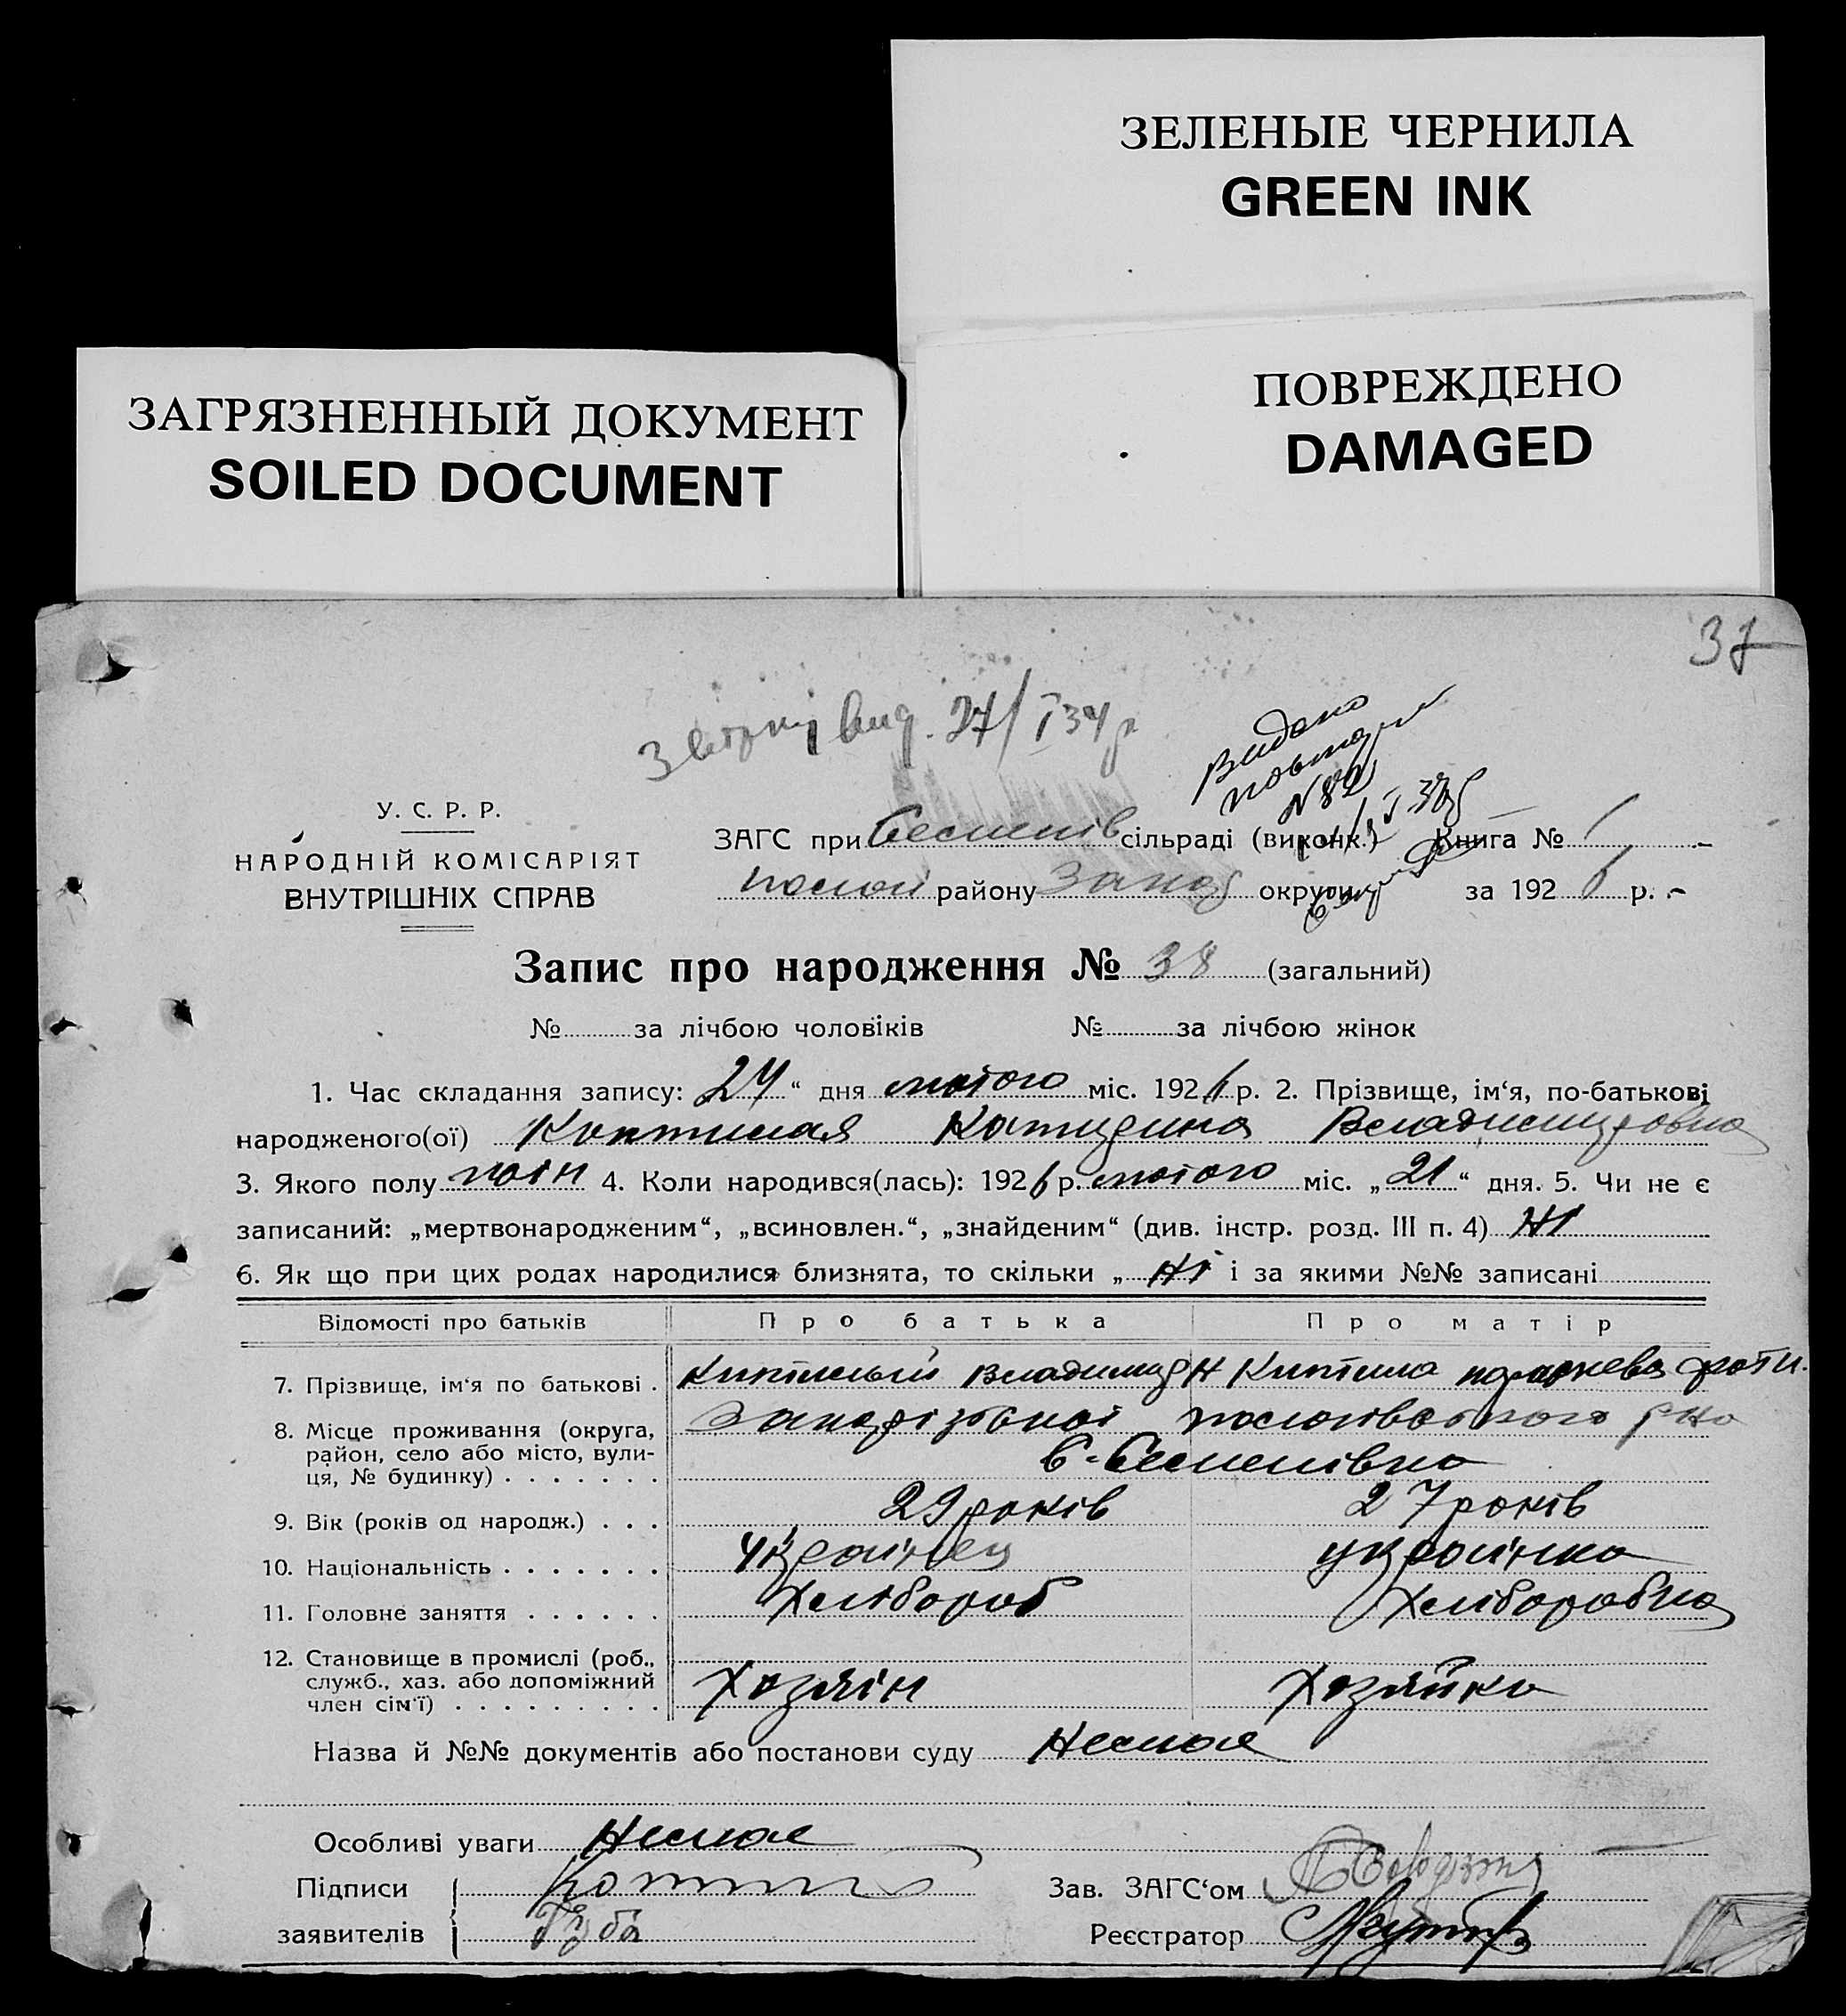 ЗЕЛЕНЫЕ ЧЕРНИЛА
GREEN INK
ПОВРЕЖДЕНО
DAMAGED
ЗАГРЯЗНЕННЫЙ ДОКУМЕНТ
SOILED DOCUMENT
37
27/I 34 р
Видано
№ 82
У. С. Р. Р.
НАРОДНІЙ КОМІСАРІЯТ
ВНУТРІШНІХ СПРАВ
ЗАГС при сільраді (виконк.) Книга № 1
району округи за 192 6 р.
Запис про народження № 38 (загальний)
№ за лічбою чоловіків № за лічбою жінок
1. Час складання запису: 24 “ дня лютого міс. 192 6 р. 2. Прізвище, ім‘я, по-батькові
народженого(ої) Катирина Владимировна
3. Якого полу жін 4. Коли народився(лась): 192 6 р. лютого міс. „ 21 “ дня. 5. Чи не є
записаний: „мертвонародженим“, „всиновлен.“, „знайденим“ (див. інстр. розд. III п. 4) Ні
6. Як що при цих родах народилися близнята, то скільки „ Ні і за якими №№ записані
Відомості про батьків Про батька Про матір
7. Прізвище, ім‘я по батькові . Владимир Н
8. Місце проживання (округа,
район, село або місто, вули-
ця, № будинку) . . . . . . .
9. Вік (років од народж.) . . . 29 років 27 років
10. Національність . . . . . . . українец українка
11. Головне заняття . . . . . . Хлібороб Хліборобка
12. Становище в промислі (роб.,
служб., хаз. або допоміжний
член сім‘ї) . . . . . . . . . Хозяін Хозяйка
Назва й №№ документів або постанови суду Немає
Особливі уваги Немає
Підписи Зав. ЗАГС‘ом
заявителів Реєстратор